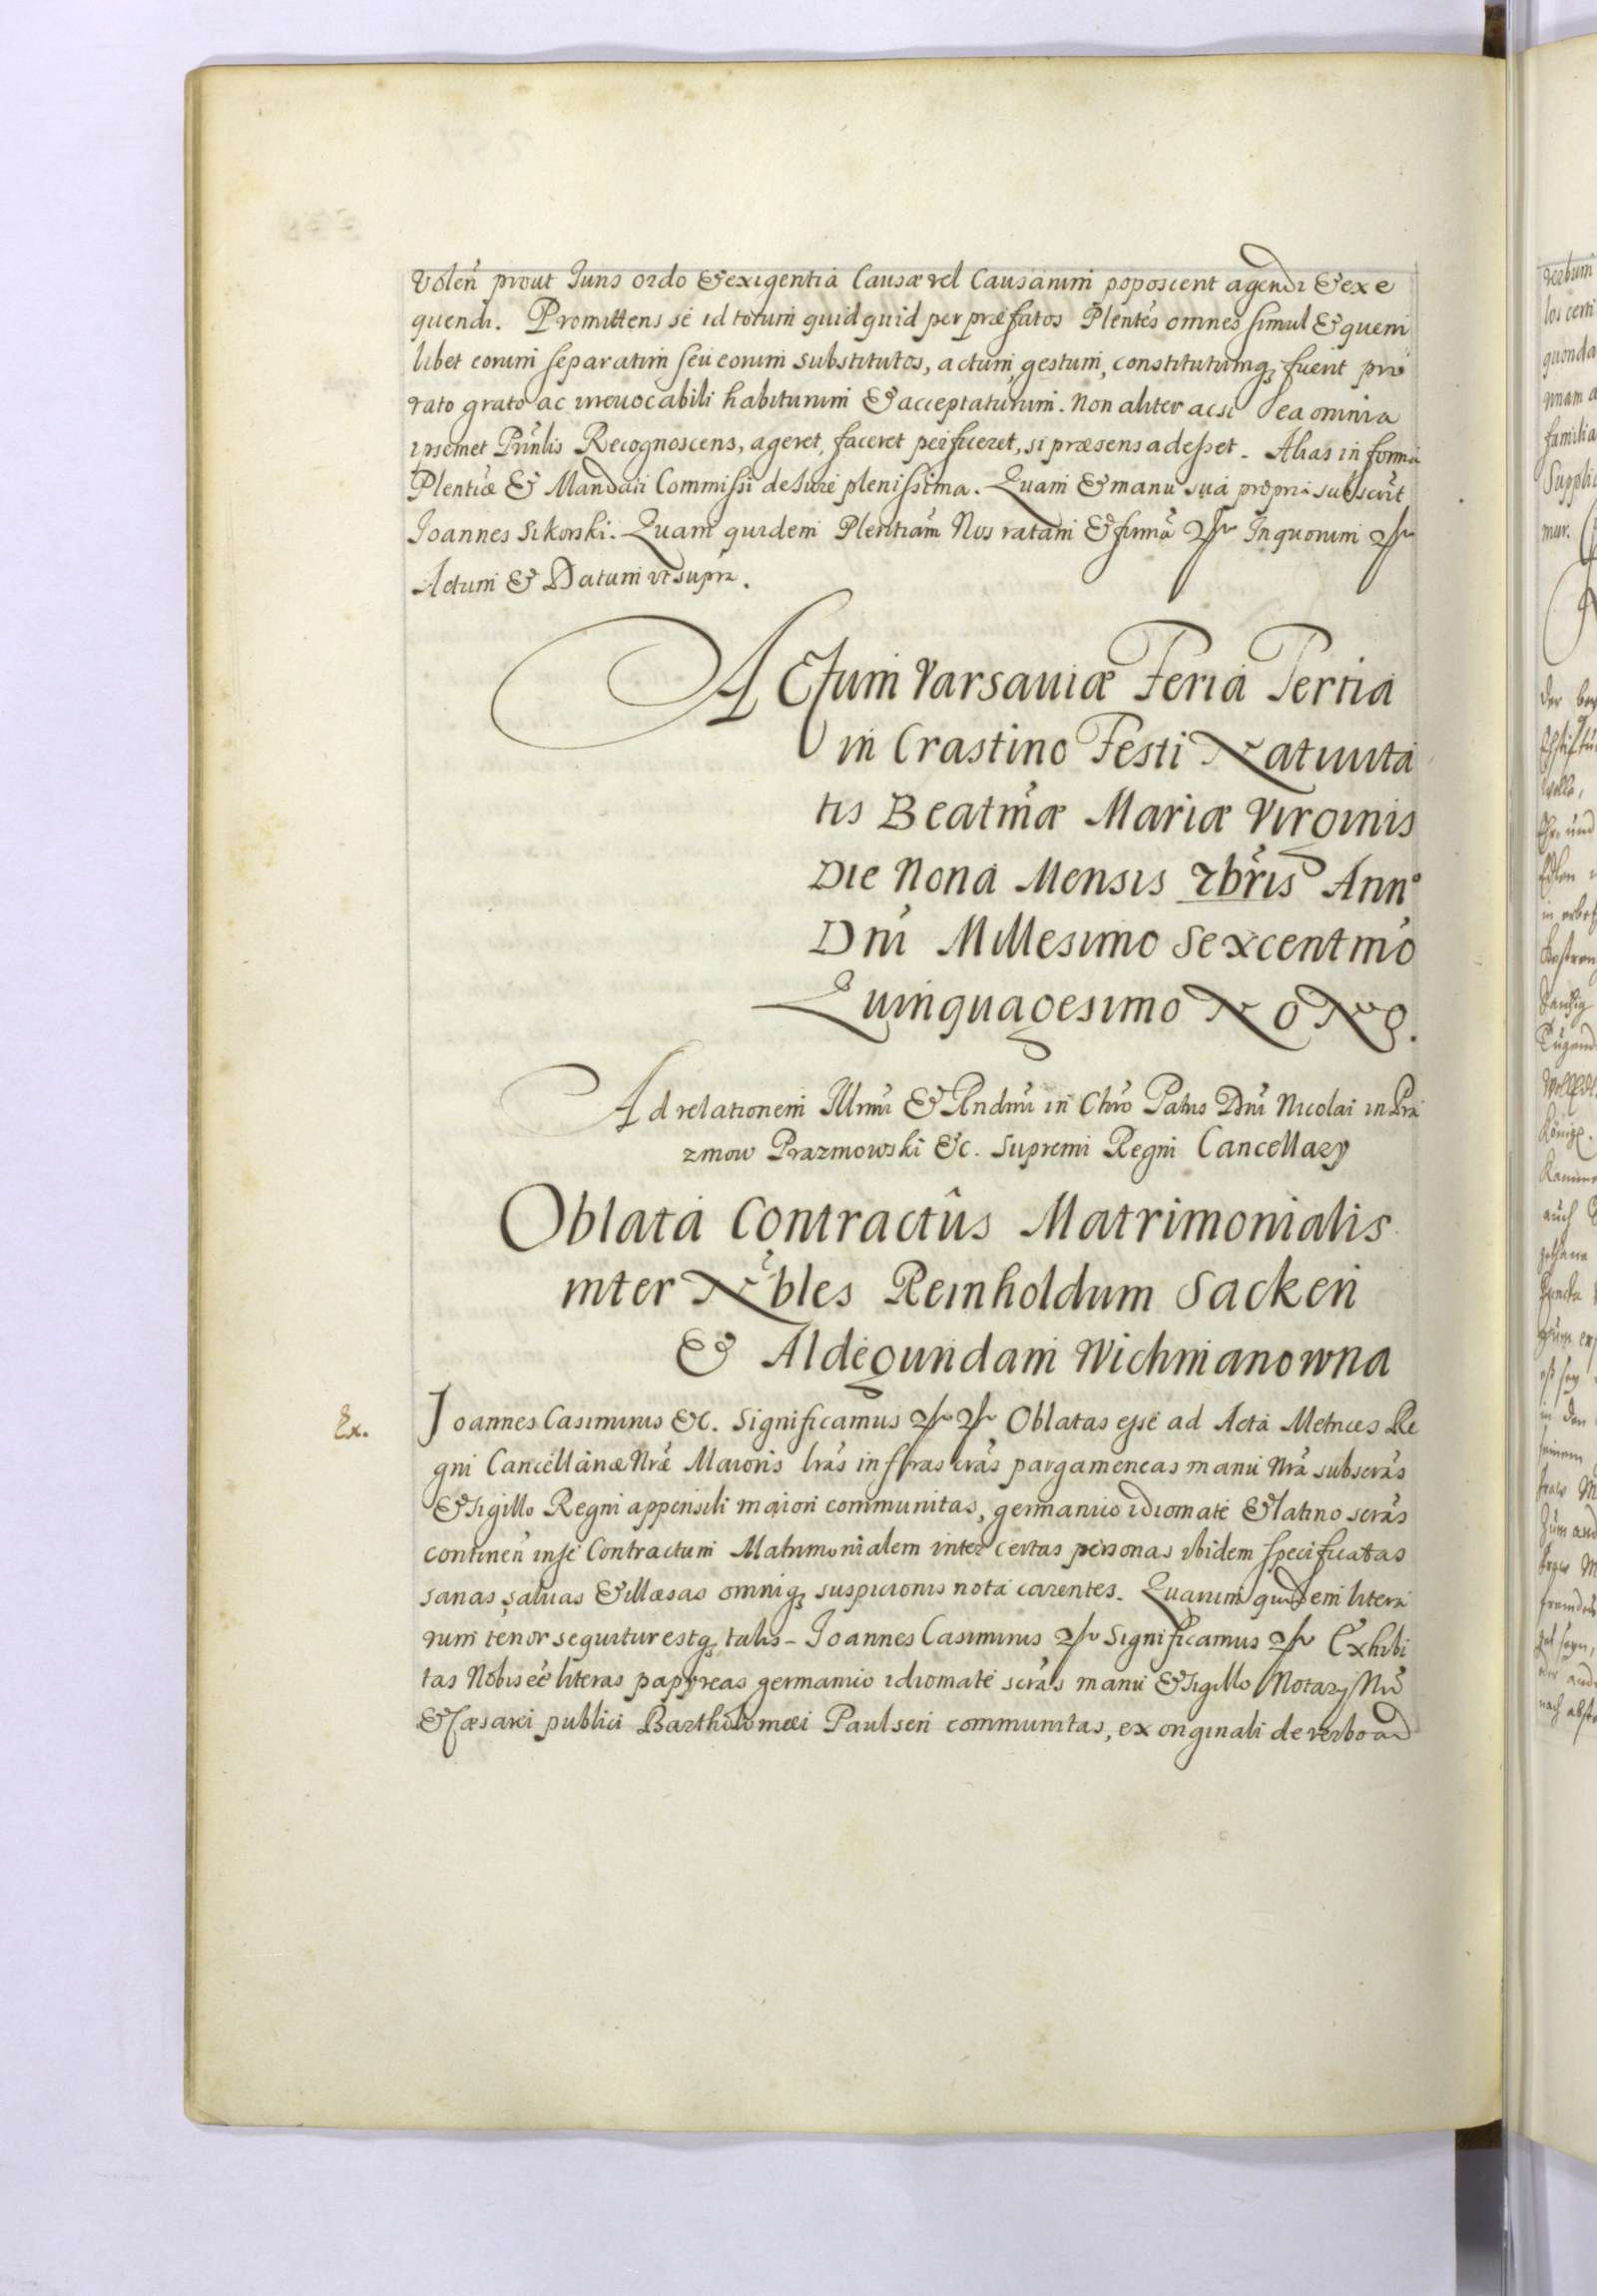 Volen̄ prout Juris ordo & exigentia Causæ vel Causarum poposcerit agendi & exe
quendi. Promittens se id totum quidquid per præfatos Plentes omnes simul & quem
libet eorum separatim seu eorum substitutos, actum, gestum, constitutumq; fuerit pro
rato grato ac irreuocabili habiturum & acceptaturum. Non aliter acsi ea omnia
ipsemet Prinlis Recognoscens, ageret, faceret perficeret, si præsens adesset. Alias in forma
Plentiæ & Mandati Commissi de Jure plenissima. Quam & manu sua propria subscrit
Joannes Sikorski. Quam quidem Plentiam Nos ratam & firmã In quorum
Actum & Datum vt supra.
Actum Varsauiæ Feria Tertia
in Crastino Festi Natiuita
tis Beatmæ Mariæ Virginis
Die Nona Mensis 7bris Ann°
Dni Millesimo Sexcentmo
Quinquagesimo Nono.
Ad relationem Illmi & Rndmi in Chro Patris Dni Nicolai in Pra
zmow Prazmowski &c. Supremi Regni Cancellary
Oblata Contractûs Matrimonialis
inter Nobles Reinholdum Sacken
& Aldegundam Wichmanowna
Ex.
Joannes Casimirus &c. Significamus Oblatas esse ad Acta Metrices Re
gni Cancellariæ Nræ Maioris lras infrascras pargameneas manu Nra subscras
& Sigillo Regni appensili maiori communitas, germanico idiomate & latino scras
continen̄ in se Contractum Matrimonialem inter certas personas ibidem specificatas
sanas saluas & illæsas omniq; suspicionis nota carentes. Quarum quidem litera
rum tenor sequitur estq; talis - Joannes Casimirus Significamus Exhibi
tas Nobis eē literas papyreas germanico idiomate scras manu & Sigillo Notarij Nri
& Cæsarei publici Bartholomæi Paulsen communitas, ex originali de verbo ad